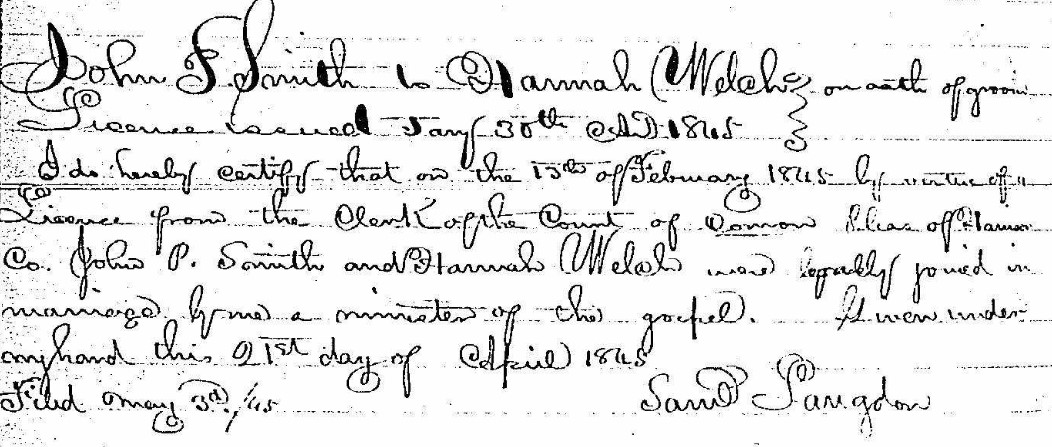 John P Smith to Hannah Welch on oath of groom
Licence issued Jany 30th AD 1845
I do hereby certify that on the 13th of February 1845 by virtue of a
Licence from the Clerk of the Court of Comon Pleas of
Co. John P. Smith and Hannah Welch were legally joined in
marriage by me a minister of the gospel. Given under
my hand this 21st day of April 1845
Filed May 3d, /45 Saml Langdon